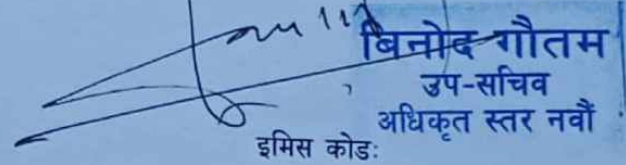 बिनोद गौतम
उप-सचिव
अधिकृत स्तर नवौं
इमिस कोडः